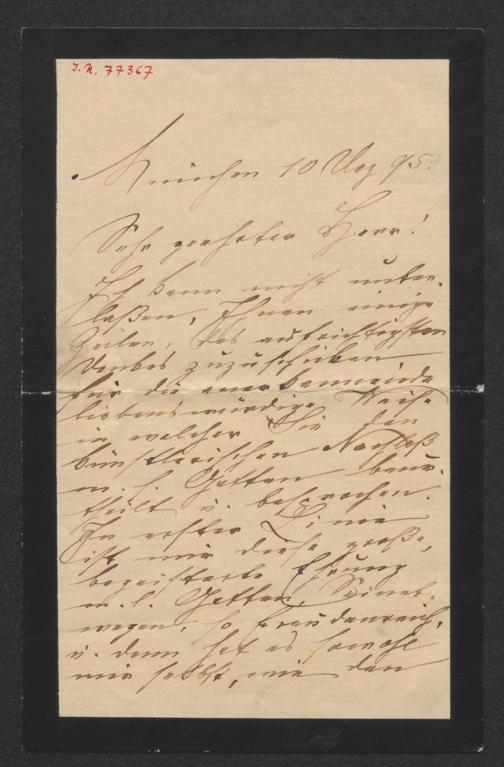 I. N. 77367
München 10 Dez 95.
Sehr geehrter Herr!
Ich kann nicht unter-
laßen, Ihnen einige
Zeilen, des aufrichtigsten
Dankes zuzuschicken
für die anerkennende
liebenswürdige Weise
in welcher Sie den
künstlerischen Nachlaß
m. l. Gatten beur-
theilt u. besprochen.
In erster Linie
ist mir diese große,
begeisterte Ehrung
m. l. Gatten, Seinet-
wegen, so freudenreich,
u. dann hat es sowohl
mir selbst, wie den